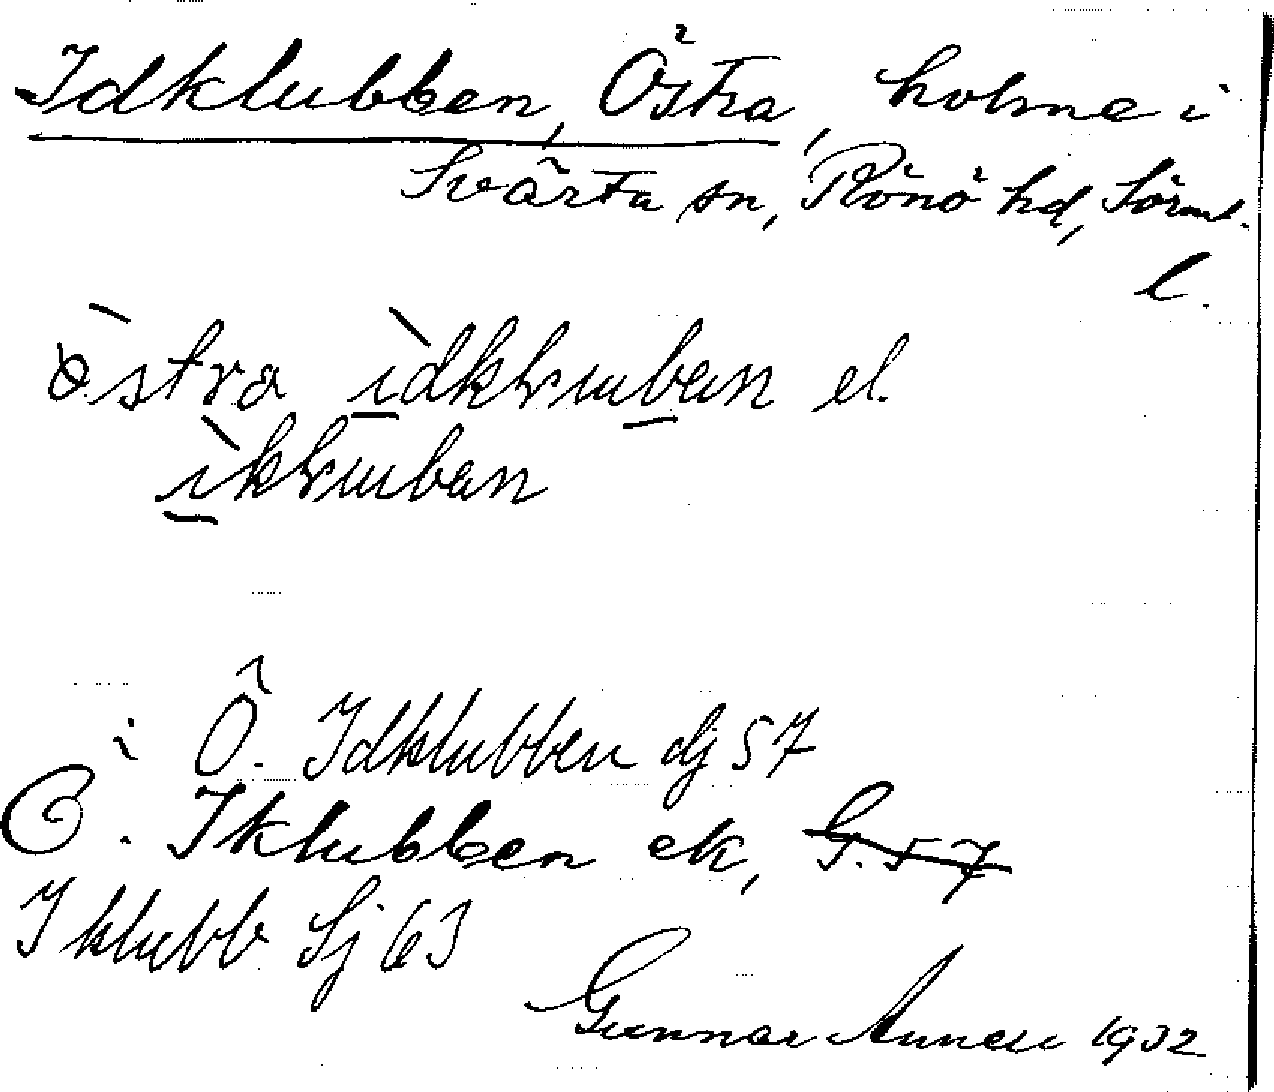 Idklubben, Östra, holme i
Svärta sn, Rönö hd, Sörml.
l.
östra idkluban el.
ikluban
i Ö. Idklubben Sj 57
Ö. Iklubben ek, G. 57
Iklubb Sj 63
Gunnar 1932